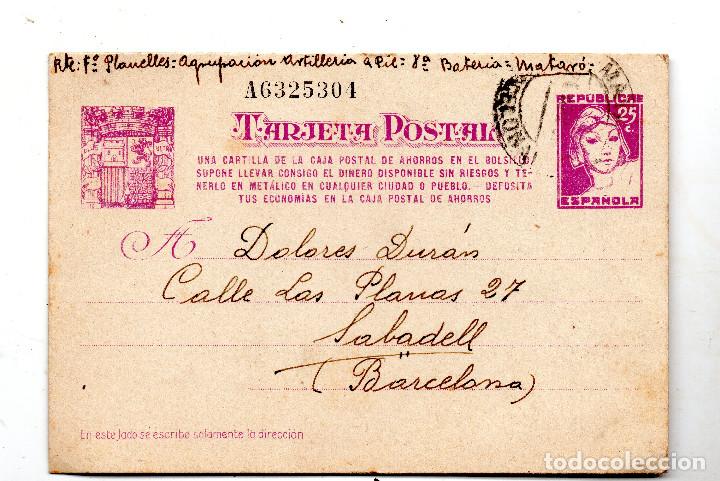 Rte: Fº Planelles = Agrupación Artillería a Pie = 8ª Batería = Mataró =
A6325304
TARJETA POSTAL
REPÚBLICA
25 c
ESPAÑOLA
UNA CARTILLA DE LA CAJA POSTAL DE AHORROS EN EL BOLSILLO
SUPONE LLEVAR CONSIGO EL DINERO DISPONIBLE SIN RIESGOS Y TE-
NERLO EN METÁLICO EN CUALQUIER CIUDAD O PUEBLO. – DEPOSITA
TUS ECONOMÍAS EN LA CAJA POSTAL DE AHORROS
A Dolores Durán
Calle Las Planas 27
Sabadell
(Barcelona)
En este lado se escribe solamente la dirección
todocoleccion